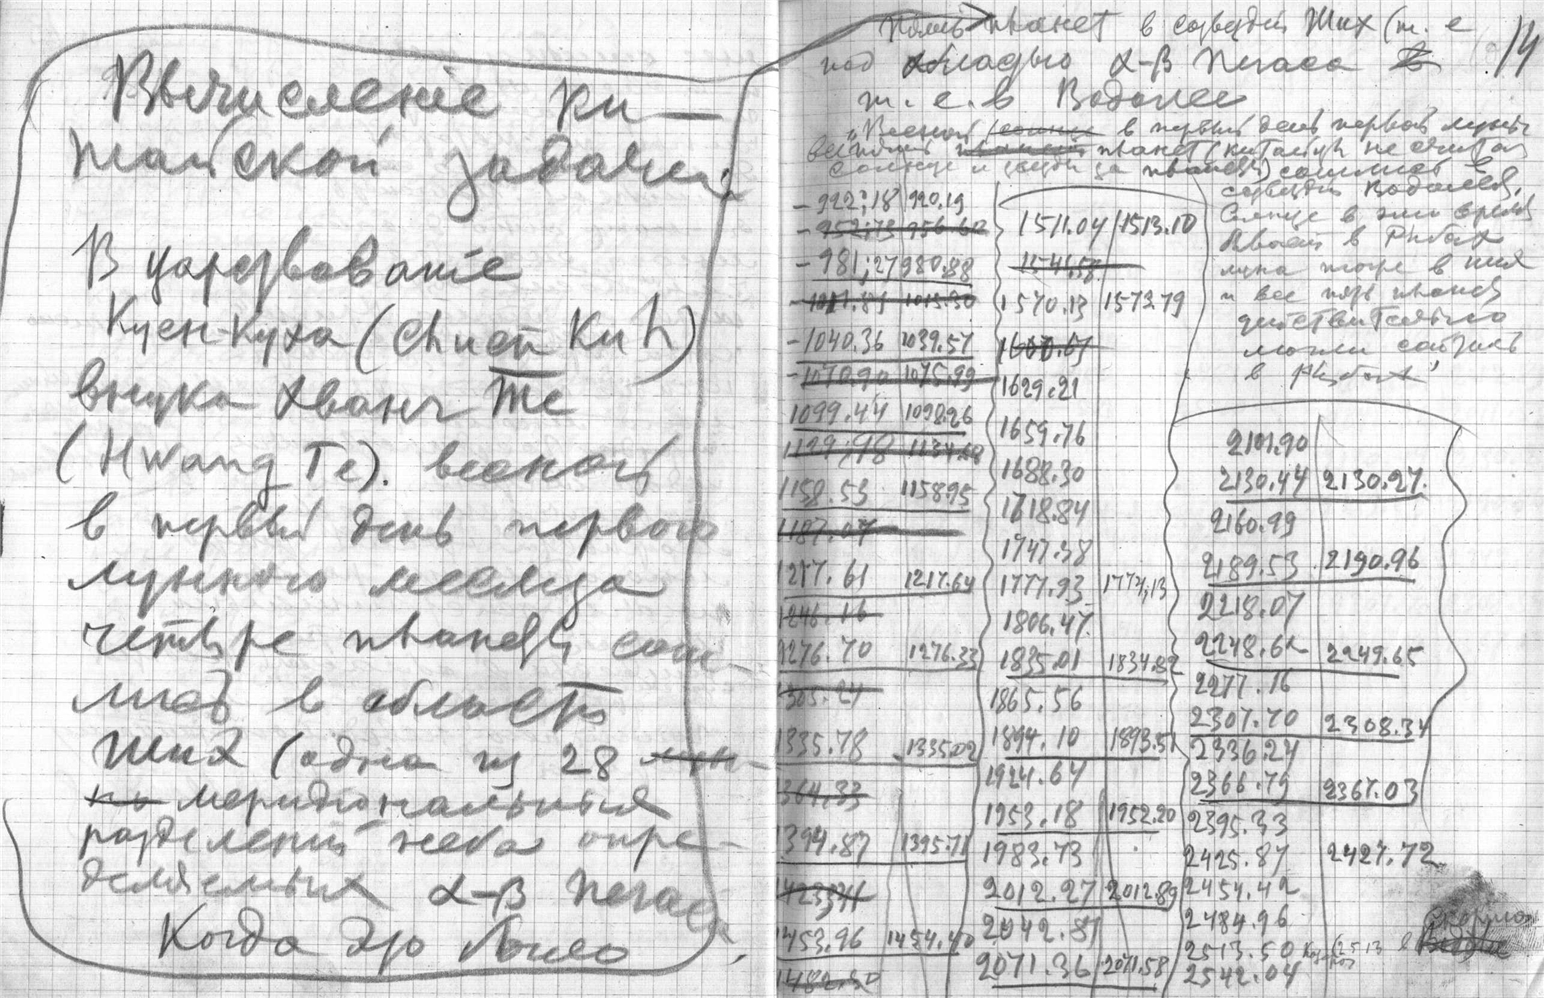 Вычисленіе ки-
тайской задачи.
В царствованіе
Куен-Куха (Chuen Kuh)
внука Хванг Те
(Hwang Te). весной
в первый день первого
лунного месяца
четыре планеты сош-
лись в области
Ших (одна из 28
меридіональных
разделений неба опре-
деляемых α-β Пегаса
Когда это было
планет в созвездіи Ших (т. е
под α-β Пегаса
т. е. в Водолее
14
"Весной в первый день первой луны
планет (китайцы не считали
солнце и луну за планеты) сошлись в
созвездіи Водолея.
Солнце в это время
бывает в Рыбах
луна тоже в них
и все пять планет
действительно
могли сойтись
в Рыбах"
-922.18 920.19
-981.27 980.88
-1040.36 1039.57
1099.44 1098.26
1158.53 1158.95
1217.61 1217.64
1276.70 1276.33
1335.78 1335.02
1394.87 1395.71
1453.96 1454.40
1511.04 1513.10
1570.13 1573.79
1629.21
1659.76
1688.30
1718.84
1747.38
1777.93 1774.13
1806.47
1835.01 1834.82
1865.56
1894.10 1893.51
1924.64
1953.18 1952.20
1983.73
2012.27 2012.89
2042.81
2071.36 2071.58
2101.90
2130.44 2130.27
2160.99
2189.53 2190.96
2218.07
2248.62 2249.65
2277.16
2307.70 2308.34
2336.24
2366.79 2367.03
2395.33
2425.87 2427.72
2454.42
2484.96
2513.50
2542.04